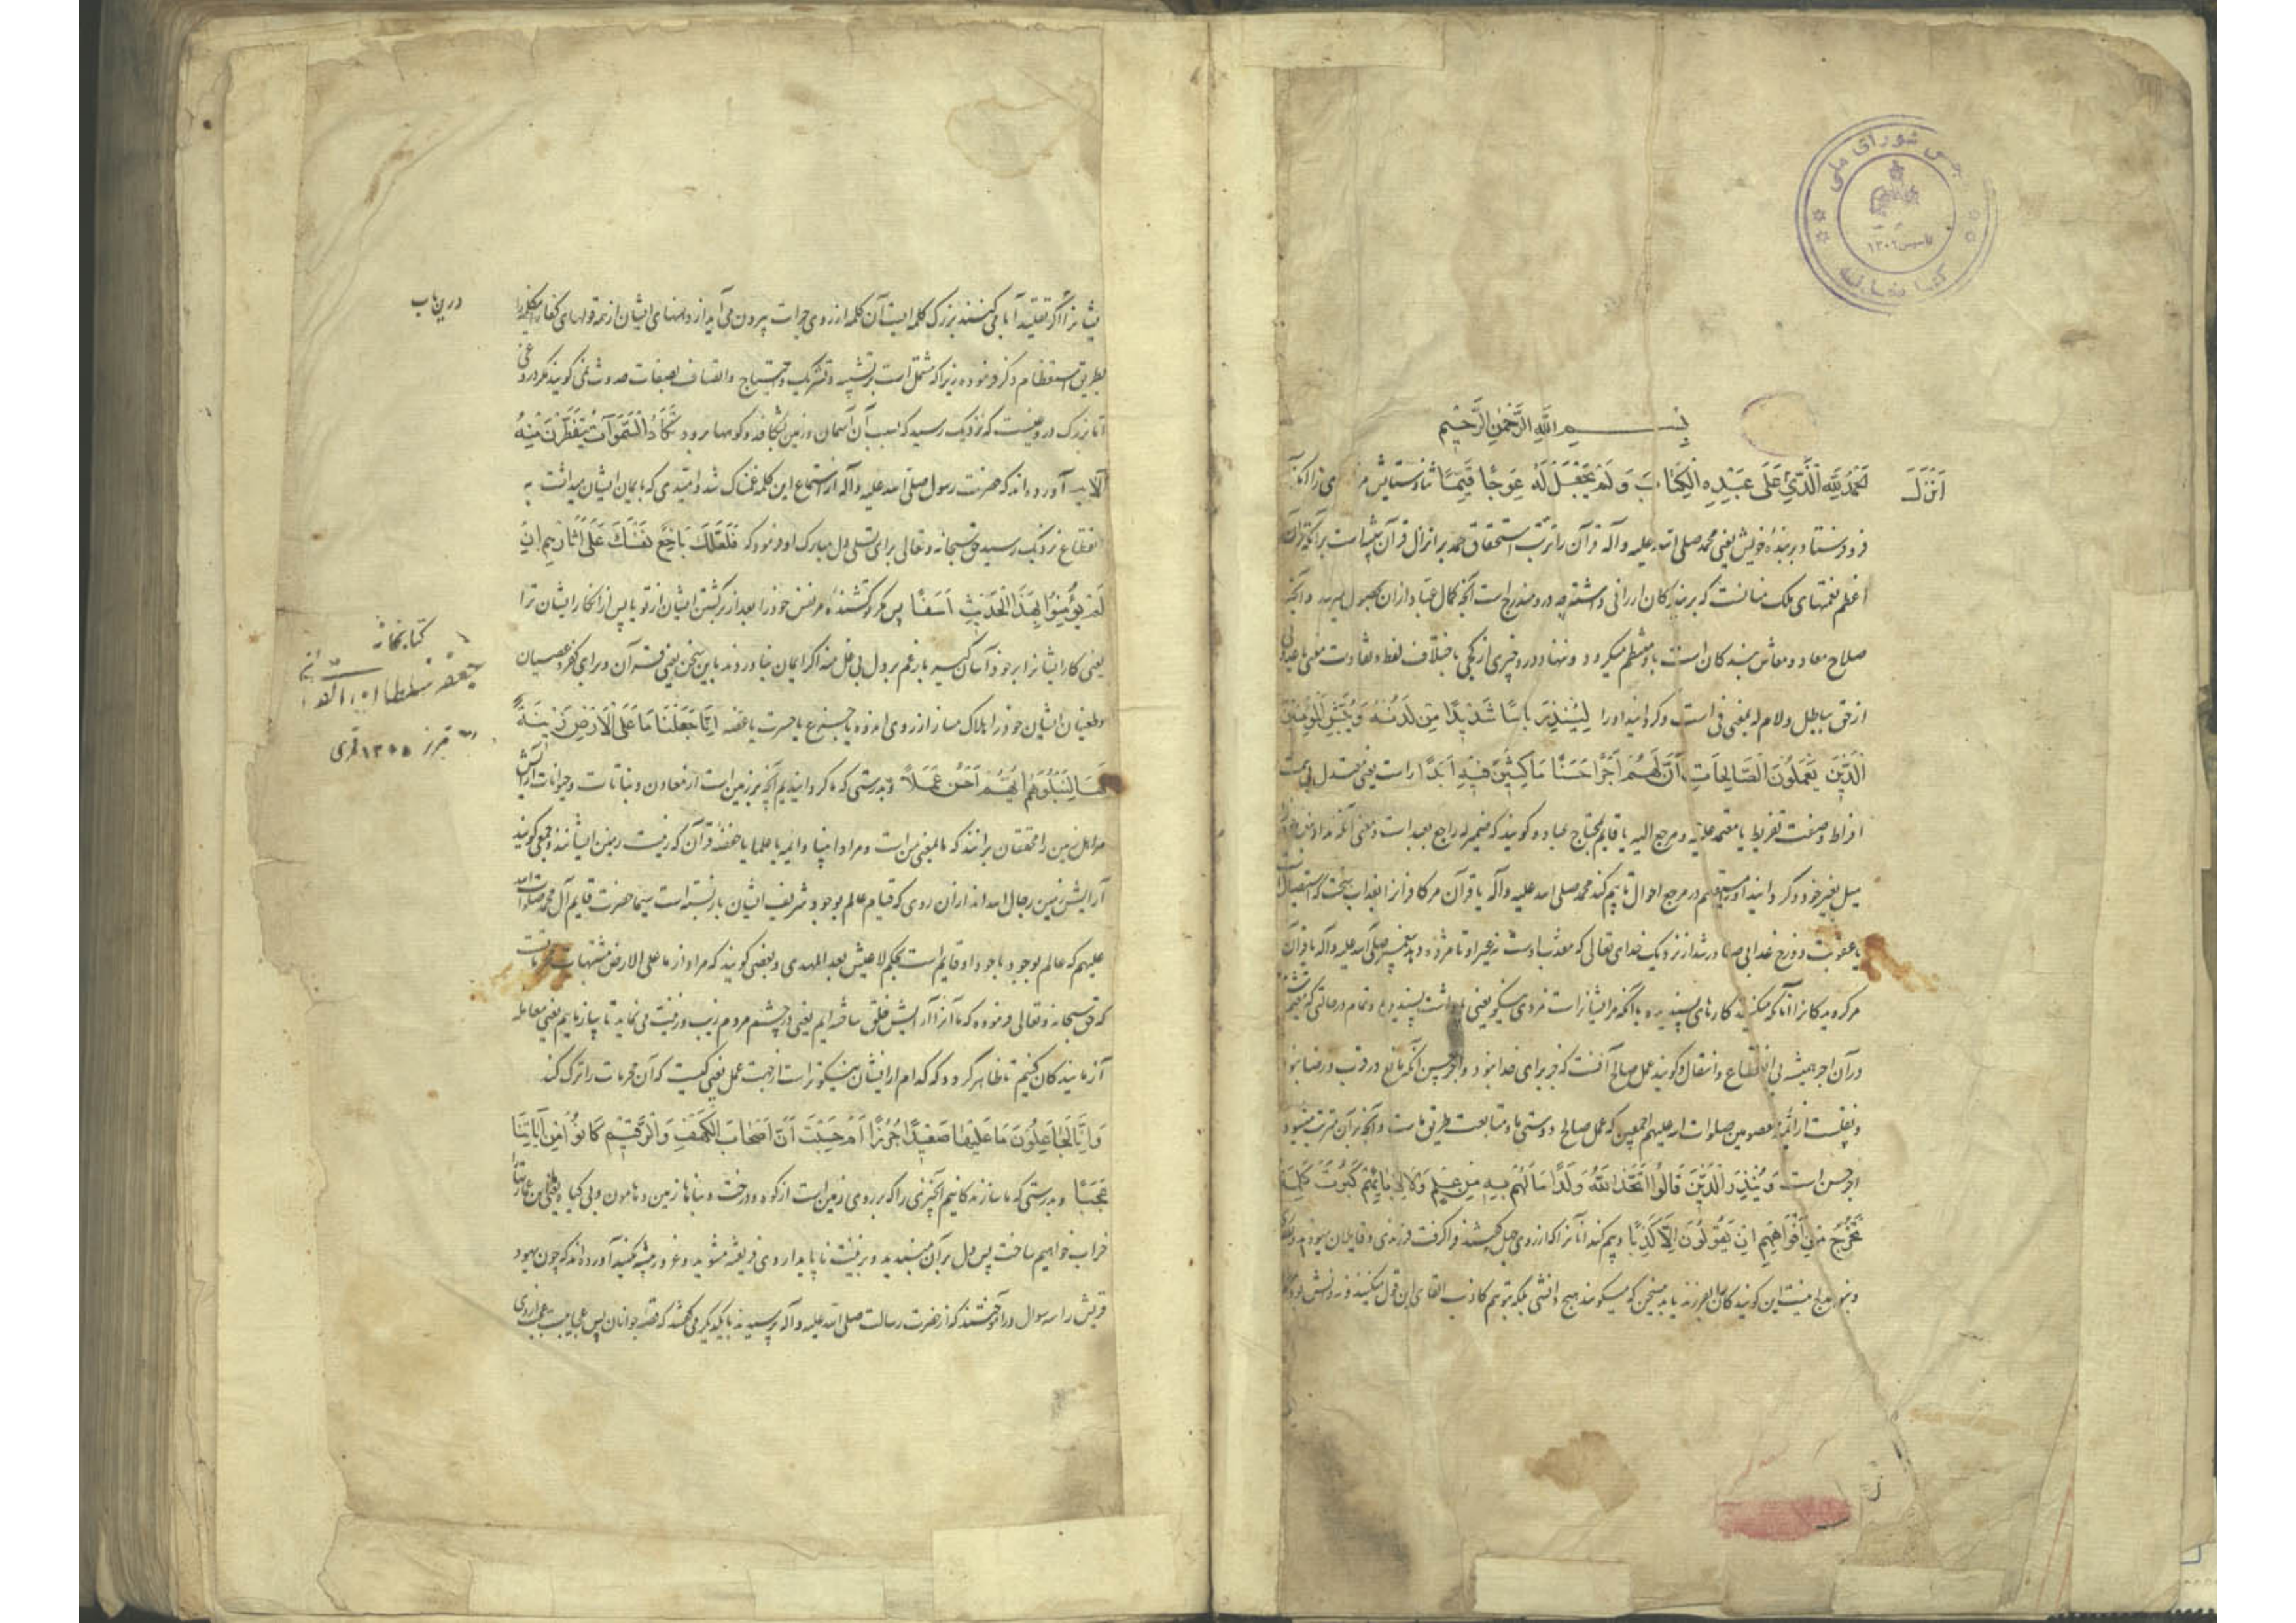 مجلس شورای ملی
تاسیس ۱۳۰۲
کتابخانه
بسم الله الرحمن الرحیم
انزل
لحمد لله الذی علی عبده الکتاب و لم یجعل له عوجا قیما ثنا و ستایش مر
فرو فرستاد بر بنده خویش یعنی محمد صلی الله علیه وآله قرآن را ترتب استحقاق حمد بر انزال قرآن
اعظم نعمتهای ملک منانست که بر بندگان ارزانی داشته چه درو مندرج است آنچه کمال عباد از آن بحصول و آنچه
صلاح معاد و معاش بندگان است باو منتظم میگردد و ننهاد درو چیزی از کجی باختلاف لفظ و تفاوت معنی یا عدول
از حق بباطل و لام له بمعنی فی است و گردانید او را لینذر باسا شدیدا من لدنه و یبشر المؤمنین
الذین یعملون الصالحات ان لهم اجرا حسنا ماکثین فیه ابدا راست یعنی معتدل بی سمت
افراط و صفت تفریط یا معتمد علیه و مرجع الیه یا قایم
میل بغیر خود و گردانید او را مستقیم در مرجع احوال تا بیم کند محمد صلی الله علیه وآله یا قرآن مر کافران را بعذاب سخت
یا عقوبت دوزخ عذابی صادر شد از نزدیک خدای تعالی که نه غیر او تا مژده دهد پیغمبر صلی الله علیه وآله یا قرآن
مر گرویدگانرا آنانکه میکنند کارهای پسندیده بآنکه مر ایشانراست مزدی نیکو یعنی
در آن اجر همیشه بی انقطاع و انتقال و گویند عمل صالح آنست که جز برای خدا نبود و اجر حسن آنکه مانع در قرب و رضا نبود
صلوات الله علیهم اجمعین که عمل صالح دوستی ما و متابعت طریق ماست و آنچه بر آن مترتب میشود
اجر حسن است و ینذر الذین قالوا اتخذ الله ولدا ما لهم به من علم ولا لابائهم کبرت کلمة
تخرج من افواههم ان یقولون الا کذبا و بیم کند آنانرا که از روی جهل گفتند فرا گرفت خدا فرزندی
درین باب
ایشانرا اگر تقلید آبا می کنند بزرگ کلمه ایست آن کلمه از روی جرات بیرون می آید از دهنهای ایشان از همه قولهای کفار
بطریق استعظام ذکر فرموده زیرا که مشتمل است بر تشبیه و تشریک و احتیاج و اتصاف بصفات حدوث نمی گویند مگر دروغی
اما بزرگ دروغیست که نزدیک رسید که بسبب آن آسمان و زمین بشکافد و کوهها برود تکاد السموات یتفطرن منه
الایه آورده اند که حضرت رسول صلی الله علیه وآله از استماع این کلمه غمناک شد و امیدی که بایمان ایشان میداشت به
انقطاع نزدیک رسید حق سبحانه وتعالی برای تسلی دل مبارک او فرمود که فلعلک باخع نفسک علی آثارهم ان
لم یؤمنوا بهذا الحدیث اسفا پس مگر تو کشنده مر نفس خود را بعد از برگشتن ایشان از تو یا پس از انکار ایشان ترا
یعنی کار ایشانرا بر خود آسان گیر و بار غم بر دل بی غل منه اگر ایمان نیاورند باین سخن یعنی قرآن و برای کفر و عصیان
و طغیان ایشان خود را هلاک مساز از روی اندوه یا جزع یا حسرت یا غصه انا جعلنا ما علی الارض زینة
لها لنبلوهم ایهم احسن عملا و بدرستی که ما گردانیدیم آنچه بر زمین است از معادن و نباتات و حیوانات آرایش
مر اهل زمین را محققان برانند که ما بمعنی من است و مراد انبیا و ائمه یا علما یا حفظه قرآن که زینت زمین ایشانند و جمعی گویند
آرایش زمین رجال الله اند از آن روی که قیام عالم بوجود شریف ایشان باز بسته است سیما حضرت قایم آل محمد صلوات الله
علیهم که عالم بوجود باجود او قایم است بحکم لا عیش بعد المهدی و بعضی گویند که مراد از ما علی الارض
که حق سبحانه وتعالی فرموده که ما آنرا آرایش خلق ساخته ایم یعنی در چشم مردم زیب و زینت می نماید تا بیازماییم یعنی معامله
آزمایندگان کنیم تا ظاهر گردد که کدام از ایشان نیکوتر است از جهت عمل یعنی کیست که آن محرمات را ترک کند
وانا لجاعلون ما علیها صعیدا جرزا ام حسبت ان اصحاب الکهف والرقیم کانوا من آیاتنا
عجبا و بدرستی که ما سازنده کانیم آنچیزی را که بر روی زمین است از کوه و درخت و بناها زمین و هامون و بی گیاه
خراب خواهیم ساخت پس دل بر آن مبندید و بزینت ناپایدار وی فریفته مشوید و آورده اند که چون یهود
قریش را سه سوال در آموختند که از حضرت رسالت صلی الله علیه وآله پرسیدند با یکدیگر می گفتند که قصه جوانان پس
کتابخانه
جعفر سلطان القرائی
تبریز ۱۳۰۵ قمری